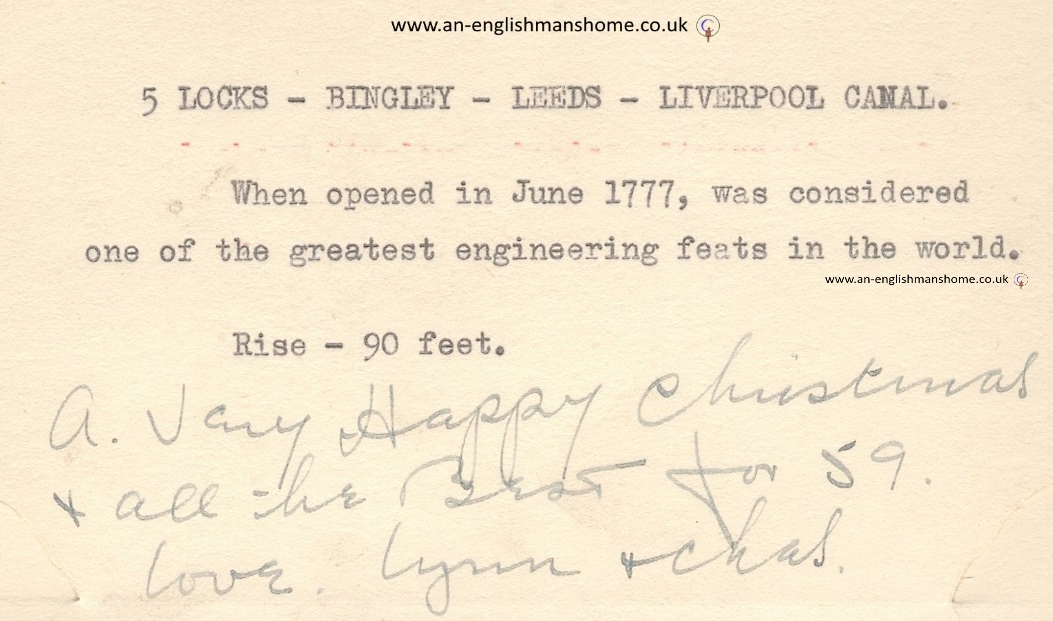 www.an-englishmanshome.co.uk
5 LOCKS - BINGLEY - LEEDS - LIVERPOOL CANAL.
When opened in June 1777, was considered
one of the greatest engineering feats in the world.
www.an-englishmanshome.co.uk
Rise - 90 feet.
A. Very Happy Christmas
+ all the Best for 59.
love. Lynn + Chas.